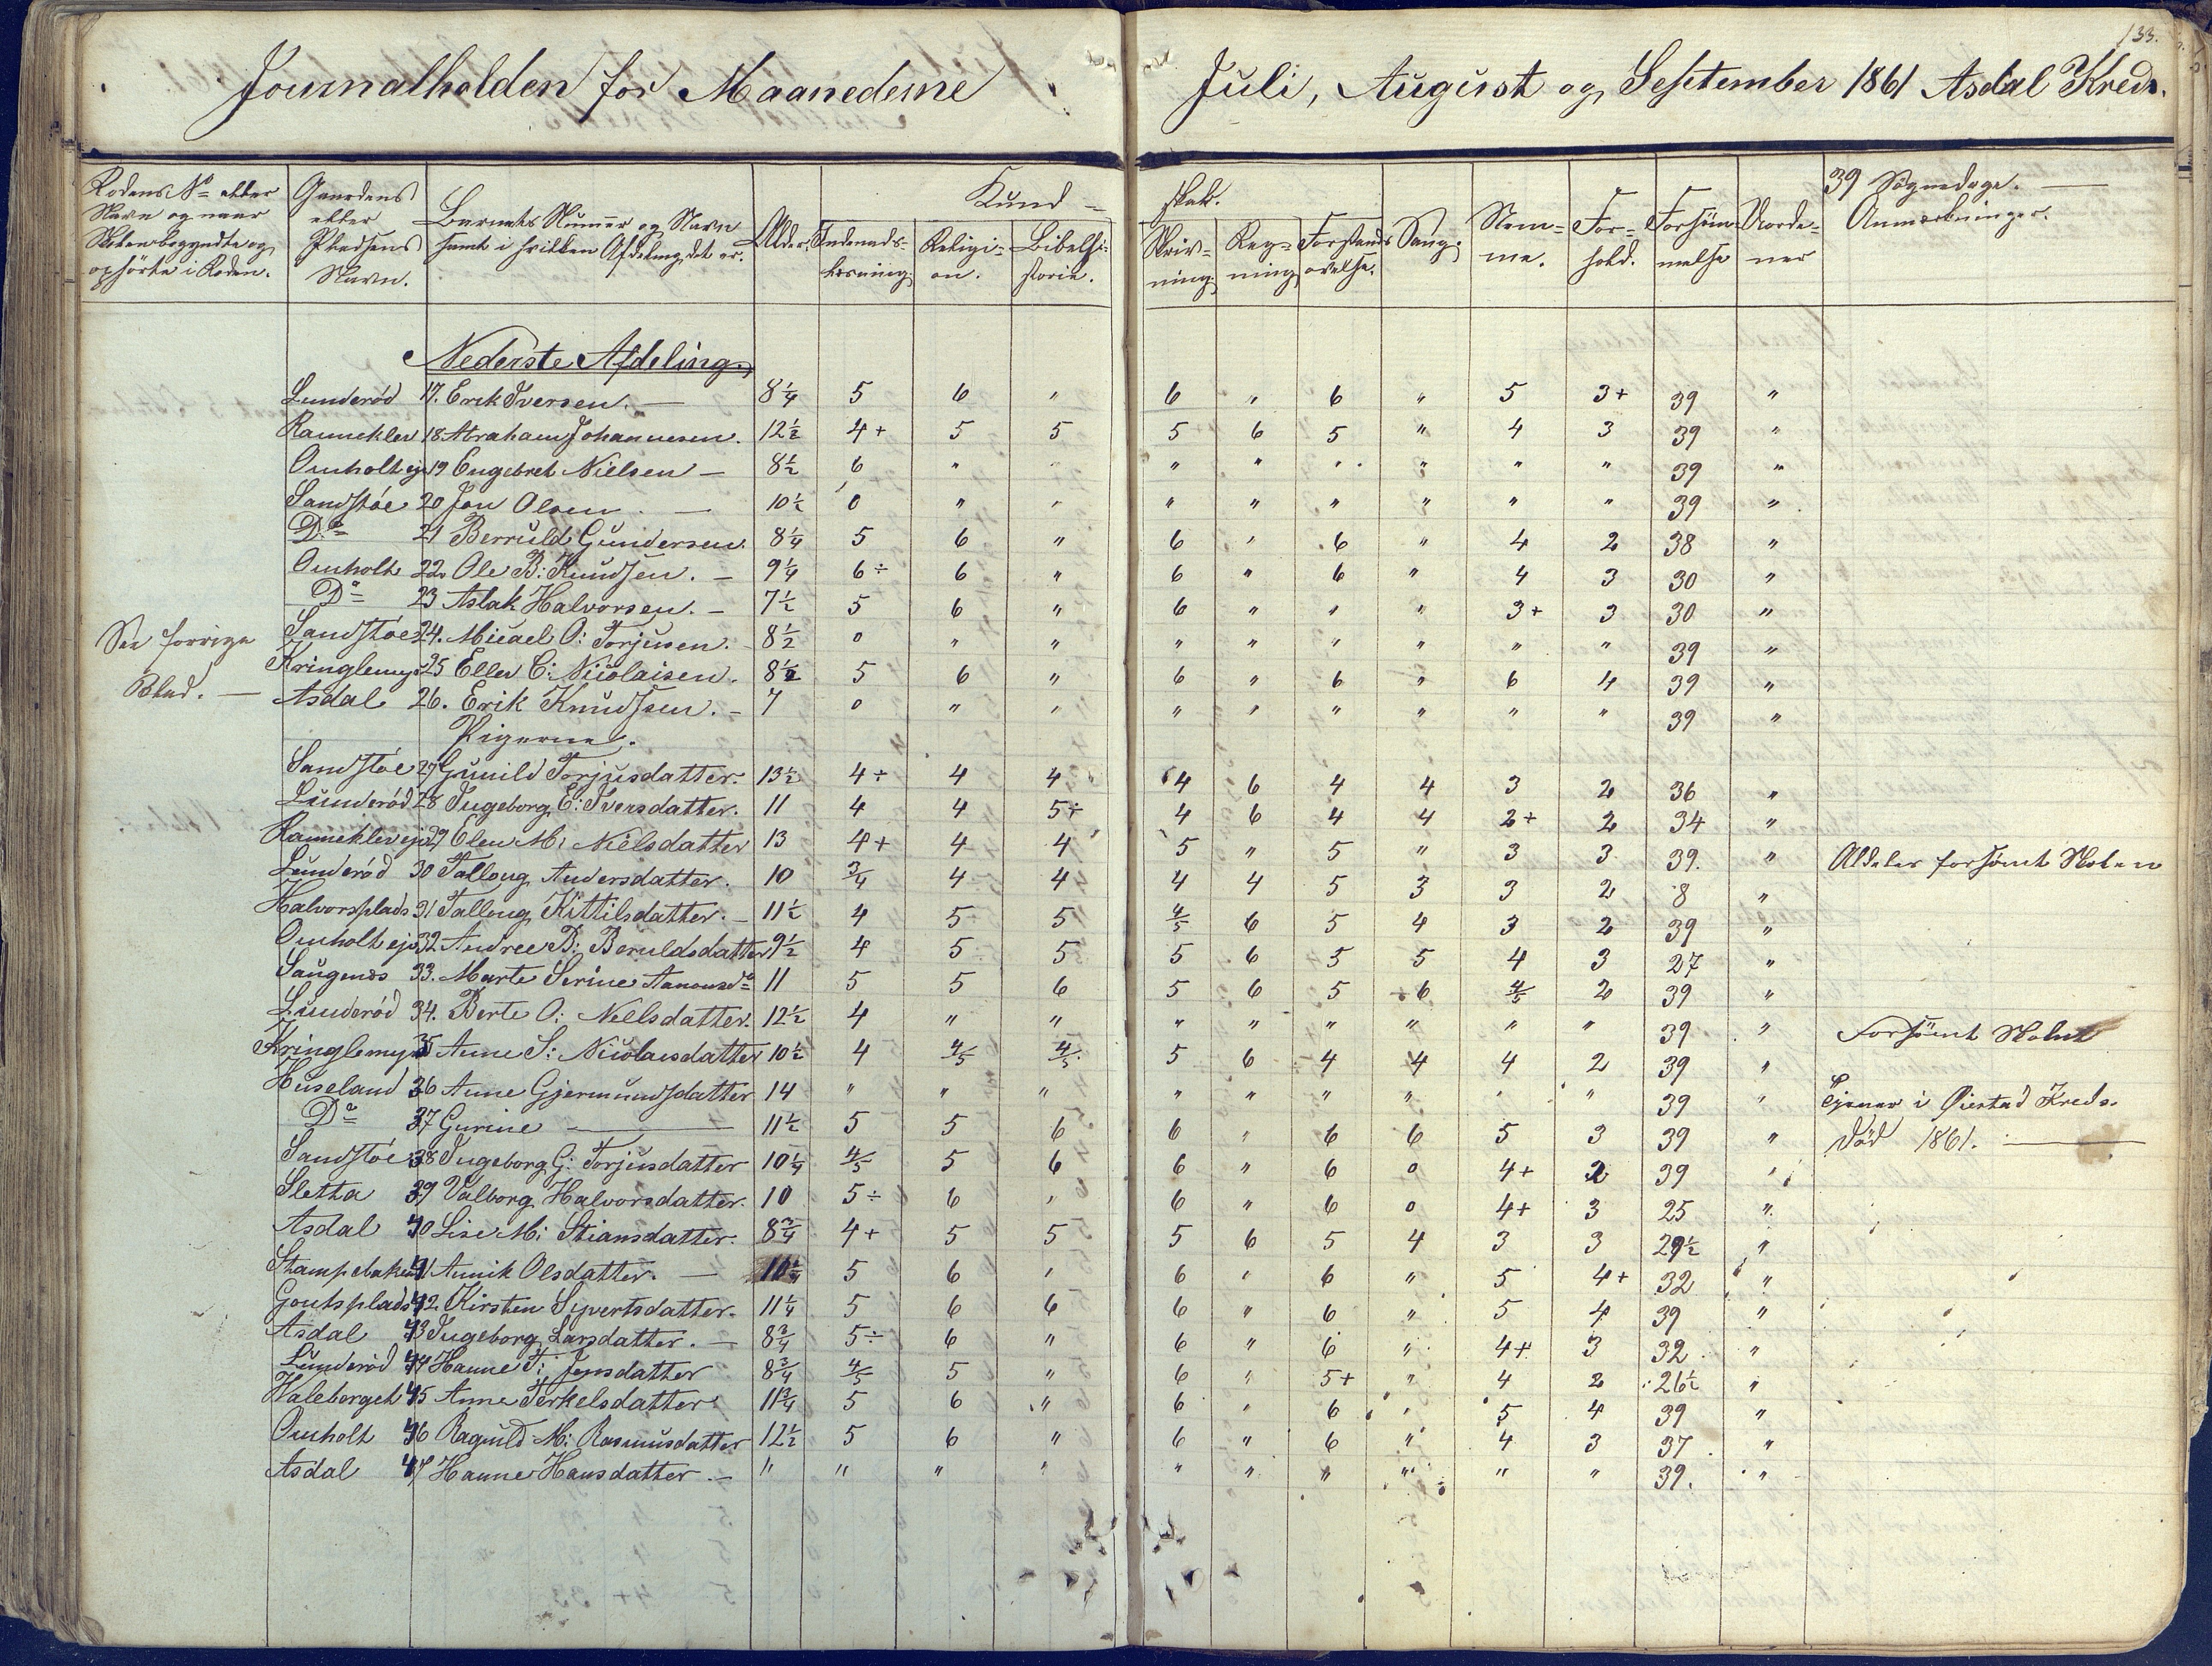 133.
Journalholden for Maanederne Juli, August og September 1861 Asdal Kreds.
Rodens No eller Navn og naar Skolen begyndte og ophörte i Roden. | Gaardens eller Pladsens Navn. | Barnets Nummer og Navn samt i hvilken Afdeling det er. | Alder. | Kundskab. | Sang. | Nemme. | Forhold. | Forsömmelse | Vordener | 39 Sögnedage. — Anmærkninger.
Indenads-læsning | Religion. | Bibelhistorie. | Skrivning | Regning | Forstandsövelse.
Nederste Afdeling.
Lunderöd 17. Erik Iversen. — 8¼ 5 6 " 6 " 6 " 5 3+ 39 "
Ranneklev 18 Abraham Johannesen. 12½ 4+ 5 5 5 6 5 " 4 3 39 "
Omholt eje 19 Engebret Nielsen — 8½ 6 " " " " " " " " 39 "
Sandstöe 20 Jon Olsen. — 10½ 0 " " " " " " " " 39 "
Do 21 Berruld Gundersen. 8¼ 5 6 " 6 " 6 " 4 2 38 "
Omholt 22. Ole B: Knudsen. — 9¼ 6÷ 6 " 6 " 6 " 4 3 30 "
Do 23 Aslak Halvorsen. — 7½ 5 6 " 6 " " " 3+ 3 30 "
See forrige Sandstöe 24. Micael O: Torjusen. 8½ 0 " " " " " " " " 39 "
Kringlemyr 25 Ellev C: Nicolaisen. 8½ 5 6 " 6 " 6 " 6 4 39 "
Blad. — Asdal 26. Erik Knudsen. — 7 0 " " " " " " " " 39 "
Pigerne.
Sandstöe 27 Gunild Torjusdatter. 13½ 4+ 4 4 4 6 4 4 3 2 36 "
Lunderöd 28 Ingeborg E: Iversdatter. 11 4 4 5÷ 4 6 4 4 2+ 2 34 "
Rannekleveje 29 Elen M: Nielsdatter 13 4+ 4 4 5 " 5 " 3 3 39. " Aldeles forsömt Skolen
Lunderöd 30 Talloug Andersdatter. 10 3/4 4 4 4 4 5 3 3 2 8 "
Halvorsplads 31 Talloug Kittilsdatter. — 11½ 4 5 5 4/5 6 5 4 3 2 39 "
Omholt eje 32. Andree B: Beruldsdatter 9½ 4 5 5 5 6 5 5 4 3 27 "
Saugenes 33. Marte Serine Aanonsd: 11 5 5 6 5 6 5 6 4/5 2 39 "
Lunderöd 34. Berte O: Neelsdatter. 12½ 4 " " " " " " " " 39 " Forsömt Skolen
Kringlemyr 35 Anne S: Nicolaisdatter 10½ 4 4/5 4/5 5 6 4 4 4 2 39 "
Huseland 36 Anne Gjermundsdatter 14 " " " " " " " " " 39 " Tjener i Øiestad Kreds.
Do 37 Gurine — 11½ 5 5 6 6 " 6 6 5 3 39 " Död 1861. —
Sandstöe 38 Ingeborg G: Torjusdatter 10¼ 4/5 5 6 6 " 6 0 4+ 2 39 "
Sletta 39 Valborg Halvorsdatter. 10 5÷ 6 " 6 " 6 0 4+ 3 25 "
Asdal 40 Lise M: Stiansdatter. 8¾ 4+ 5 5 5 6 5 4 3 3 29½ "
Stampebaken 41 Annik Olsdatter. — 10¼ 5 6 " 6 " 6 " 5 4+ 32 "
Goutsplads 42 Kirsten Syvertsdatter. 11¼ 5 6 6 6 " 6 " 5 4 39 "
Asdal 43 Ingeborg Larsdatter. — 8¾ 5÷ 6 " 6 " 6 " 4+ 3 32 "
Lunderöd 44 Hanne T: Jensdatter 8¾ 4/5 5 " 6 " 5+ " 4 2 26½ "
Valeborget 45 Anne Terkelsdatter 11¾ 5 6 " 6 " 6 " 5 4 39 "
Omholt 46 Ragnild M: Rasmusdatter 12½ 5 6 " 6 " 6 " 4 3 37 "
Asdal 47 Hanne Hansdatter. — " " " " " " " " " " 39. "